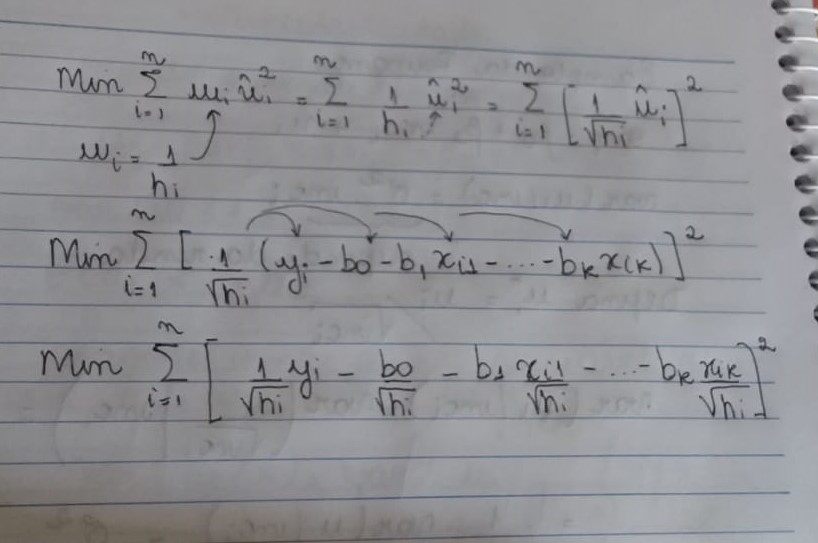 Min ∑_{i=1}^{n} wᵢ ûᵢ² = ∑_{i=1}^{n} 1/hᵢ ûᵢ² = ∑_{i=1}^{n} [1/√hᵢ ûᵢ]²
wᵢ = 1/hᵢ
Min ∑_{i=1}^{n} [1/√hᵢ (yᵢ - b0 - b₁xᵢ₁ - ... - bₖx(k)]²
Min ∑_{i=1}^{n} [1/√hᵢ yᵢ - b0/√hᵢ - b₁ xᵢ₁/√hᵢ - ... - bₖ xᵢₖ/√hᵢ]²